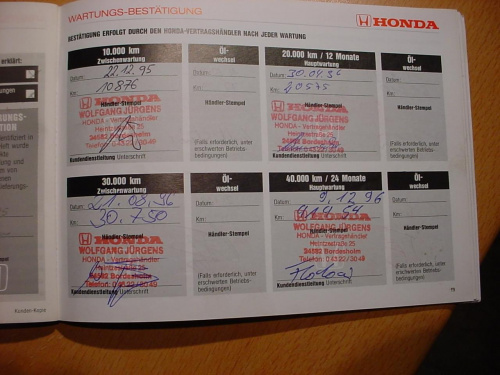 WARTUNGS-BESTÄTIGUNG
HONDA
BESTÄTIGUNG ERFOLGT DURCH DEN HONDA-VERTRAGSHÄNDLER NACH JEDER WARTUNG
10.000 km
Zwischenwartung
Datum: 22.12.95
Km: 10876
Händler-Stempel
HONDA
WOLFGANG JÜRGENS
HONDA - Vertragshändler
Heintzestraße 25
24582 Bordesholm
Telefon: 0 43 22 / 30 49
Kundendienstleitung Unterschrift
Öl-
wechsel
Datum:
Km:
Händler-Stempel
(Falls erforderlich, unter
erschwerten Betriebs-
bedingungen)
20.000 km / 12 Monate
Hauptwartung
Datum: 30.04.96
Km: 20575
Händler-Stempel
HONDA
WOLFGANG JÜRGENS
HONDA - Vertragshändler
Heintzestraße 25
24582 Bordesholm
Telefon: 0 43 22 / 30 49
Kundendienstleitung Unterschrift
Öl-
wechsel
Datum:
Km:
Händler-Stempel
(Falls erforderlich, unter
erschwerten Betriebs-
bedingungen)
30.000 km
Zwischenwartung
Datum: 21.08.96
Km: 30.750
HONDA
WOLFGANG JÜRGENS
HONDA - Vertragshändler
Heintzestraße 25
24582 Bordesholm
Telefon: 0 43 22 / 30 49
Kundendienstleitung Unterschrift
Öl-
wechsel
Datum:
Km:
(Falls erforderlich, unter
erschwerten Betriebs-
bedingungen)
40.000 km / 24 Monate
Hauptwartung
Datum: 9.12.96
Km:
HONDA
WOLFGANG JÜRGENS
HONDA - Vertragshändler
Heintzestraße 25
24582 Bordesholm
Telefon: 0 43 22 / 30 49
Kundendienstleitung Unterschrift
Öl-
wechsel
Datum:
Km:
(Falls erforderlich, unter
erschwerten Betriebs-
bedingungen)
erklärt:
Kunden-Kopie